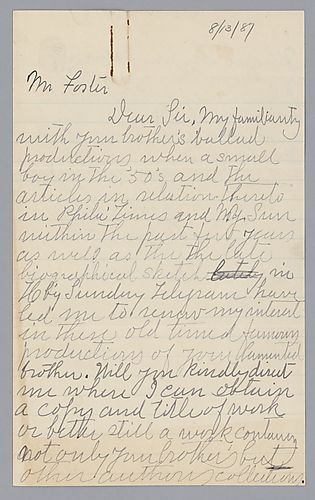 8/13/87
Mr Foster
Dear Sir, My familiarity
with your brother's ballad
productions when a small
boy in the '50's and the
articles in relation thereto
in Phila Times and N.Y. Sun
within the past few years
as well as the the late
biographical sketch in
Hbg Sunday Telegram have
led me to renew my interest
in these old timed famous
productions of your lamented
brother. Will you kindly direct
me where I can obtain
a copy and title of work
or better still a work containing
not only your brother's but
other authors collections